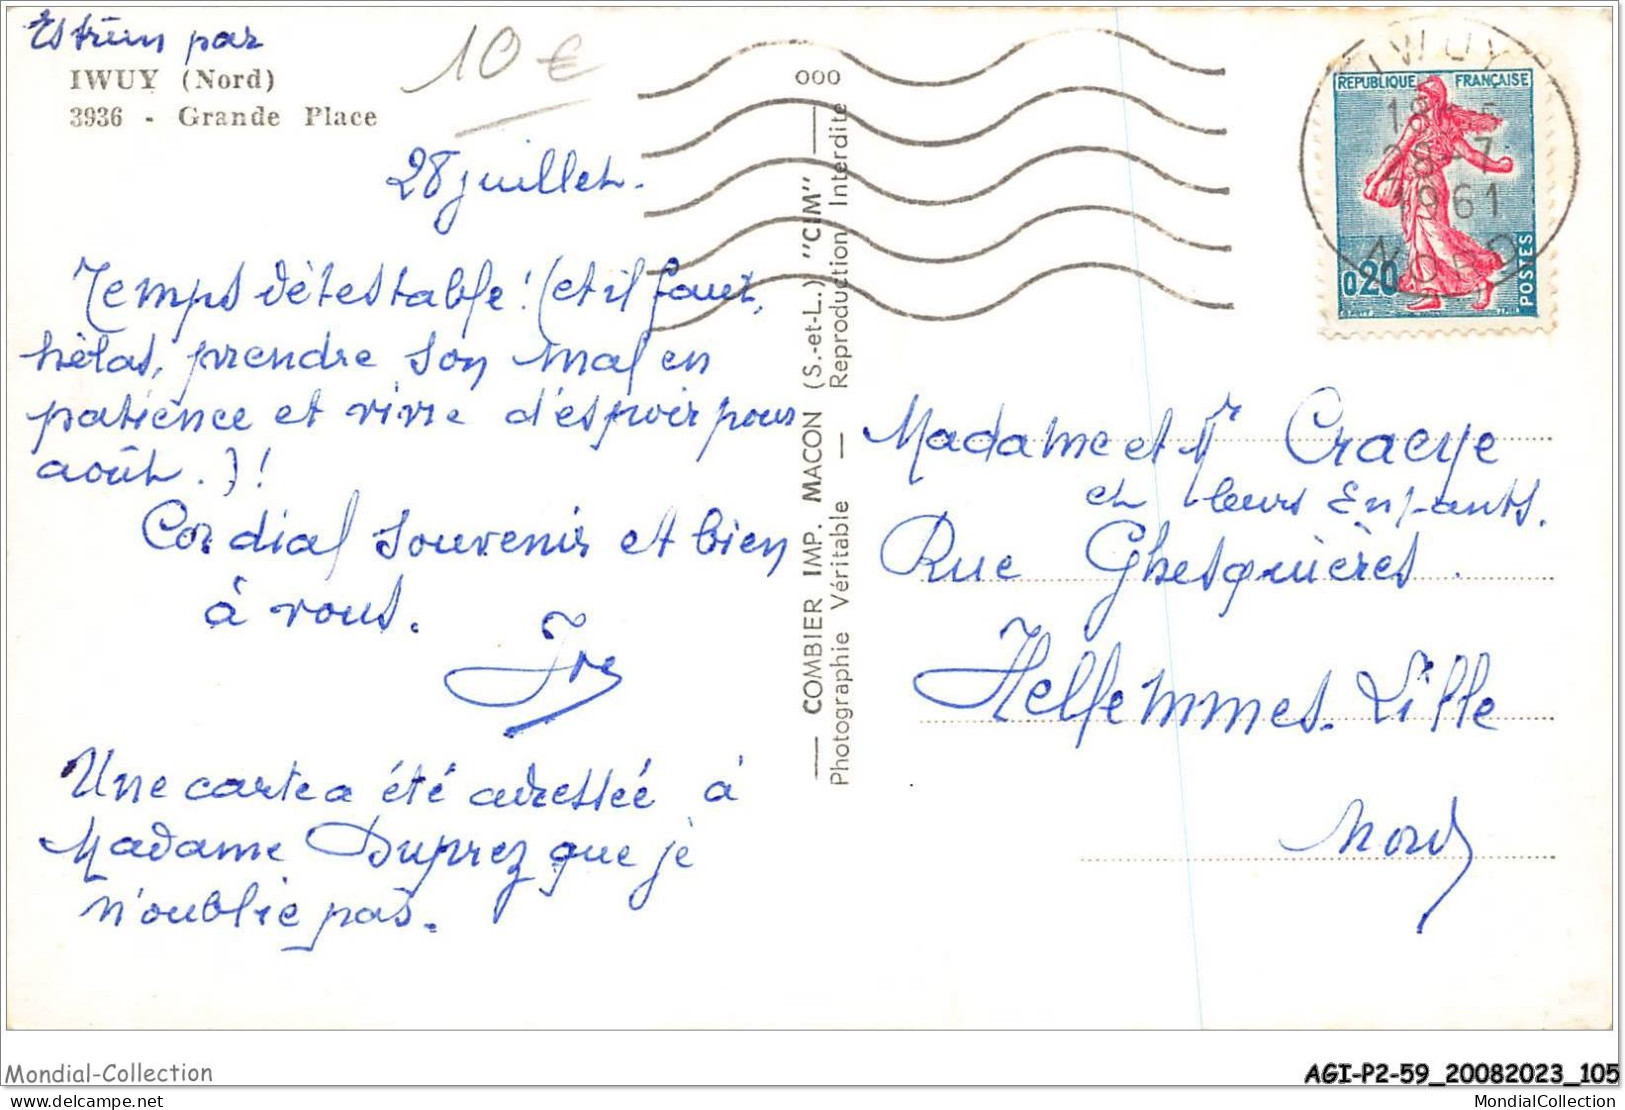 Estrun par
IWUY (Nord)
3936 - Grande Place
10 €
28 juillet.
Temps détestable ! (et il faut,
hélas, prendre son mal en
patience et vivre d'espoir pour
août.) !
Cordial souvenir et bien
à vous.
Une carte a été adressée à
Madame Duprez que je
n'oublie pas.
ooo
— COMBIER IMP. MACON (S.-et-L.) "CIM" —
Photographie Véritable — Reproduction Interdite
IWUY
18
28-7
1961
NORD
REPUBLIQUE FRANÇAISE
0,20
POSTES
Madame et Mr Craeye
et leurs Enfants.
Rue Ghesquières.
Hellemmes-Lille
Nord
Mondial-Collection
AGI-P2-59_20082023_105
delcampe.net
MondialCollection